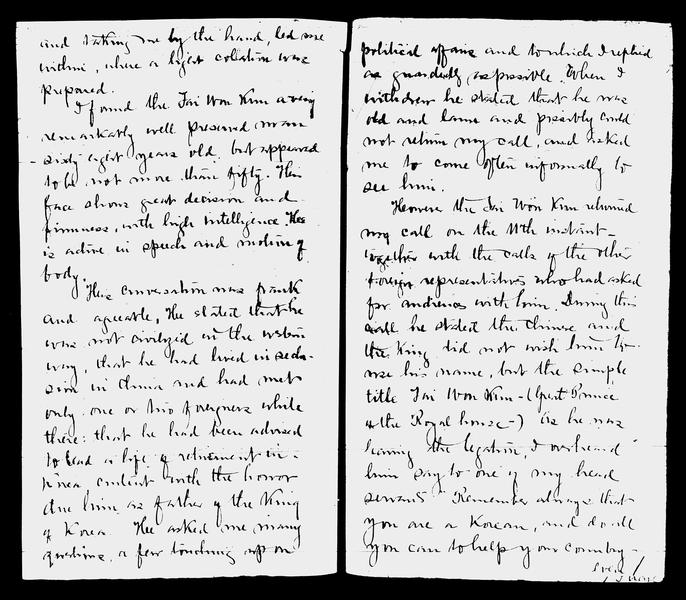 and taking me by the hand, led me
within, where a light colation was
prepared.
I found the Tai Won Kun a very
remarkably well preserved man
sixty eight years old, but appeared
to be not more than fifty. His
face shows great decision and
firmness, with high intelligence. He
is active in speech and motion of
body.
His conversation was frank
and agreeable. He stated that he
was not civilized in the western
way, that he had lived in seclu-
sion in China and had met
only one or two foreigners while
there: that he had been advised
to lead a life of retirement in
Korea content with the honor
due him as father of the King
of Korea. He asked me many
questions, a few touching upon
political affairs and to which I replied
as guardedly as possible. When I
withdrew he stated that he was
old and lame and possibly could
not return my call, and asked
me to come often informally to
see him.
However the Tai Won Kun returned
my call on the 11th instant—
together with the calls of the other
foreign representatives who had asked
for audiences with him. During this
call he stated the Chinese and
the King did not wish him to
use his name, but the simple
title Tai Won Kun—(great Prince
of the Royal house—) As he was
leaving the legation, I overheard
him say to one of my head
servants "Remember always that
you are a Korean, and do all
you can to help your country—